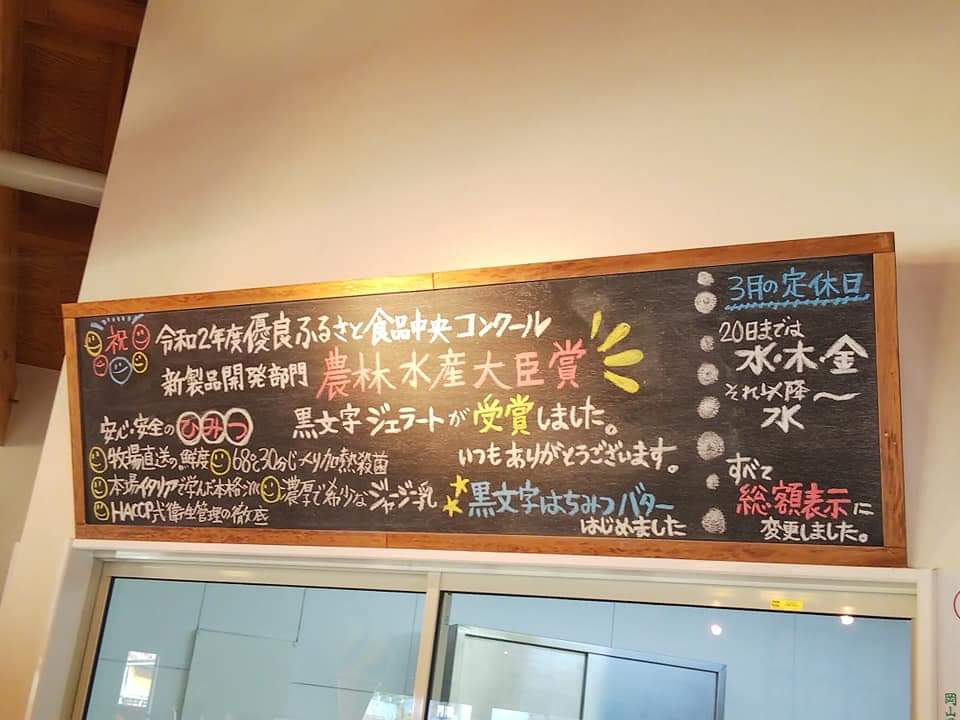 祝
令和2年度優良ふるさと食品中央コンクール
新製品開発部門 農林水産大臣賞
黒文字ジェラートが受賞しました。
いつもありがとうございます。
安心・安全のひみつ
牧場直送の鮮度
68℃30分じっくり加熱殺菌
本場イタリアで学んだ本格派
濃厚で希少なジャージー乳
HACCP式衛生管理の徹底
黒文字はちみつバター
はじめました
3月の定休日
20日までは
水・木・金
それ以降〜
水
すべて
総額表示に
変更しました。
岡山